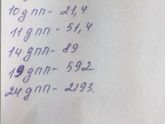 10 дпп - 21,4
11 дпп - 51,4
14 дпп - 89
19 дпп - 592
24 дпп - 2193.